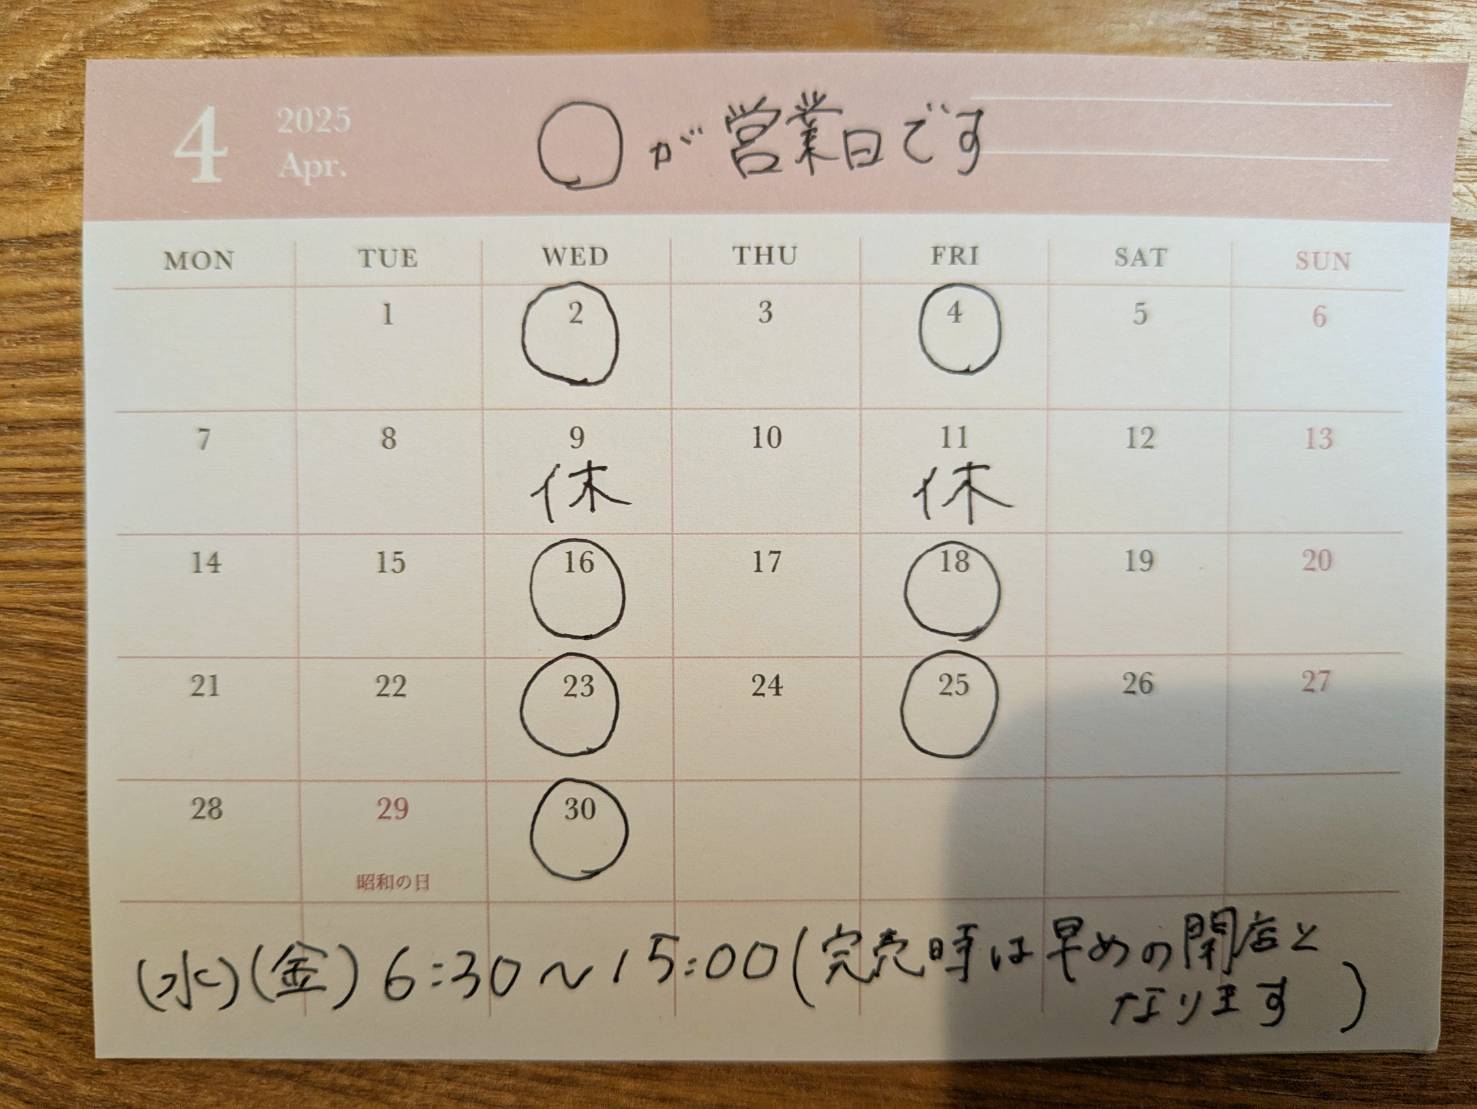 4 2025 ○が営業日です
Apr.
MON TUE WED THU FRI SAT SUN
1 2 3 4 5 6
7 8 9 10 11 12 13
休 休
14 15 16 17 18 19 20
21 22 23 24 25 26 27
28 29 30
昭和の日
(水)(金) 6:30〜15:00(完売時は早めの閉店と
なります)